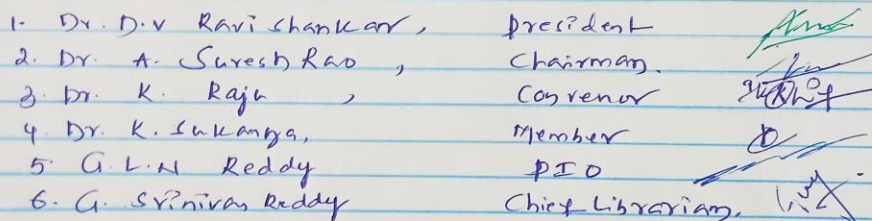 1. Dr. D.V Ravi shankar, President
2. Dr. A. Suresh Rao, Chairman.
3. Dr. K. Raju, Convenor
4. Dr. K. Sukanya, Member
5. G.L.N Reddy PIO
6. G. Srinivas Reddy Chief Librarian.